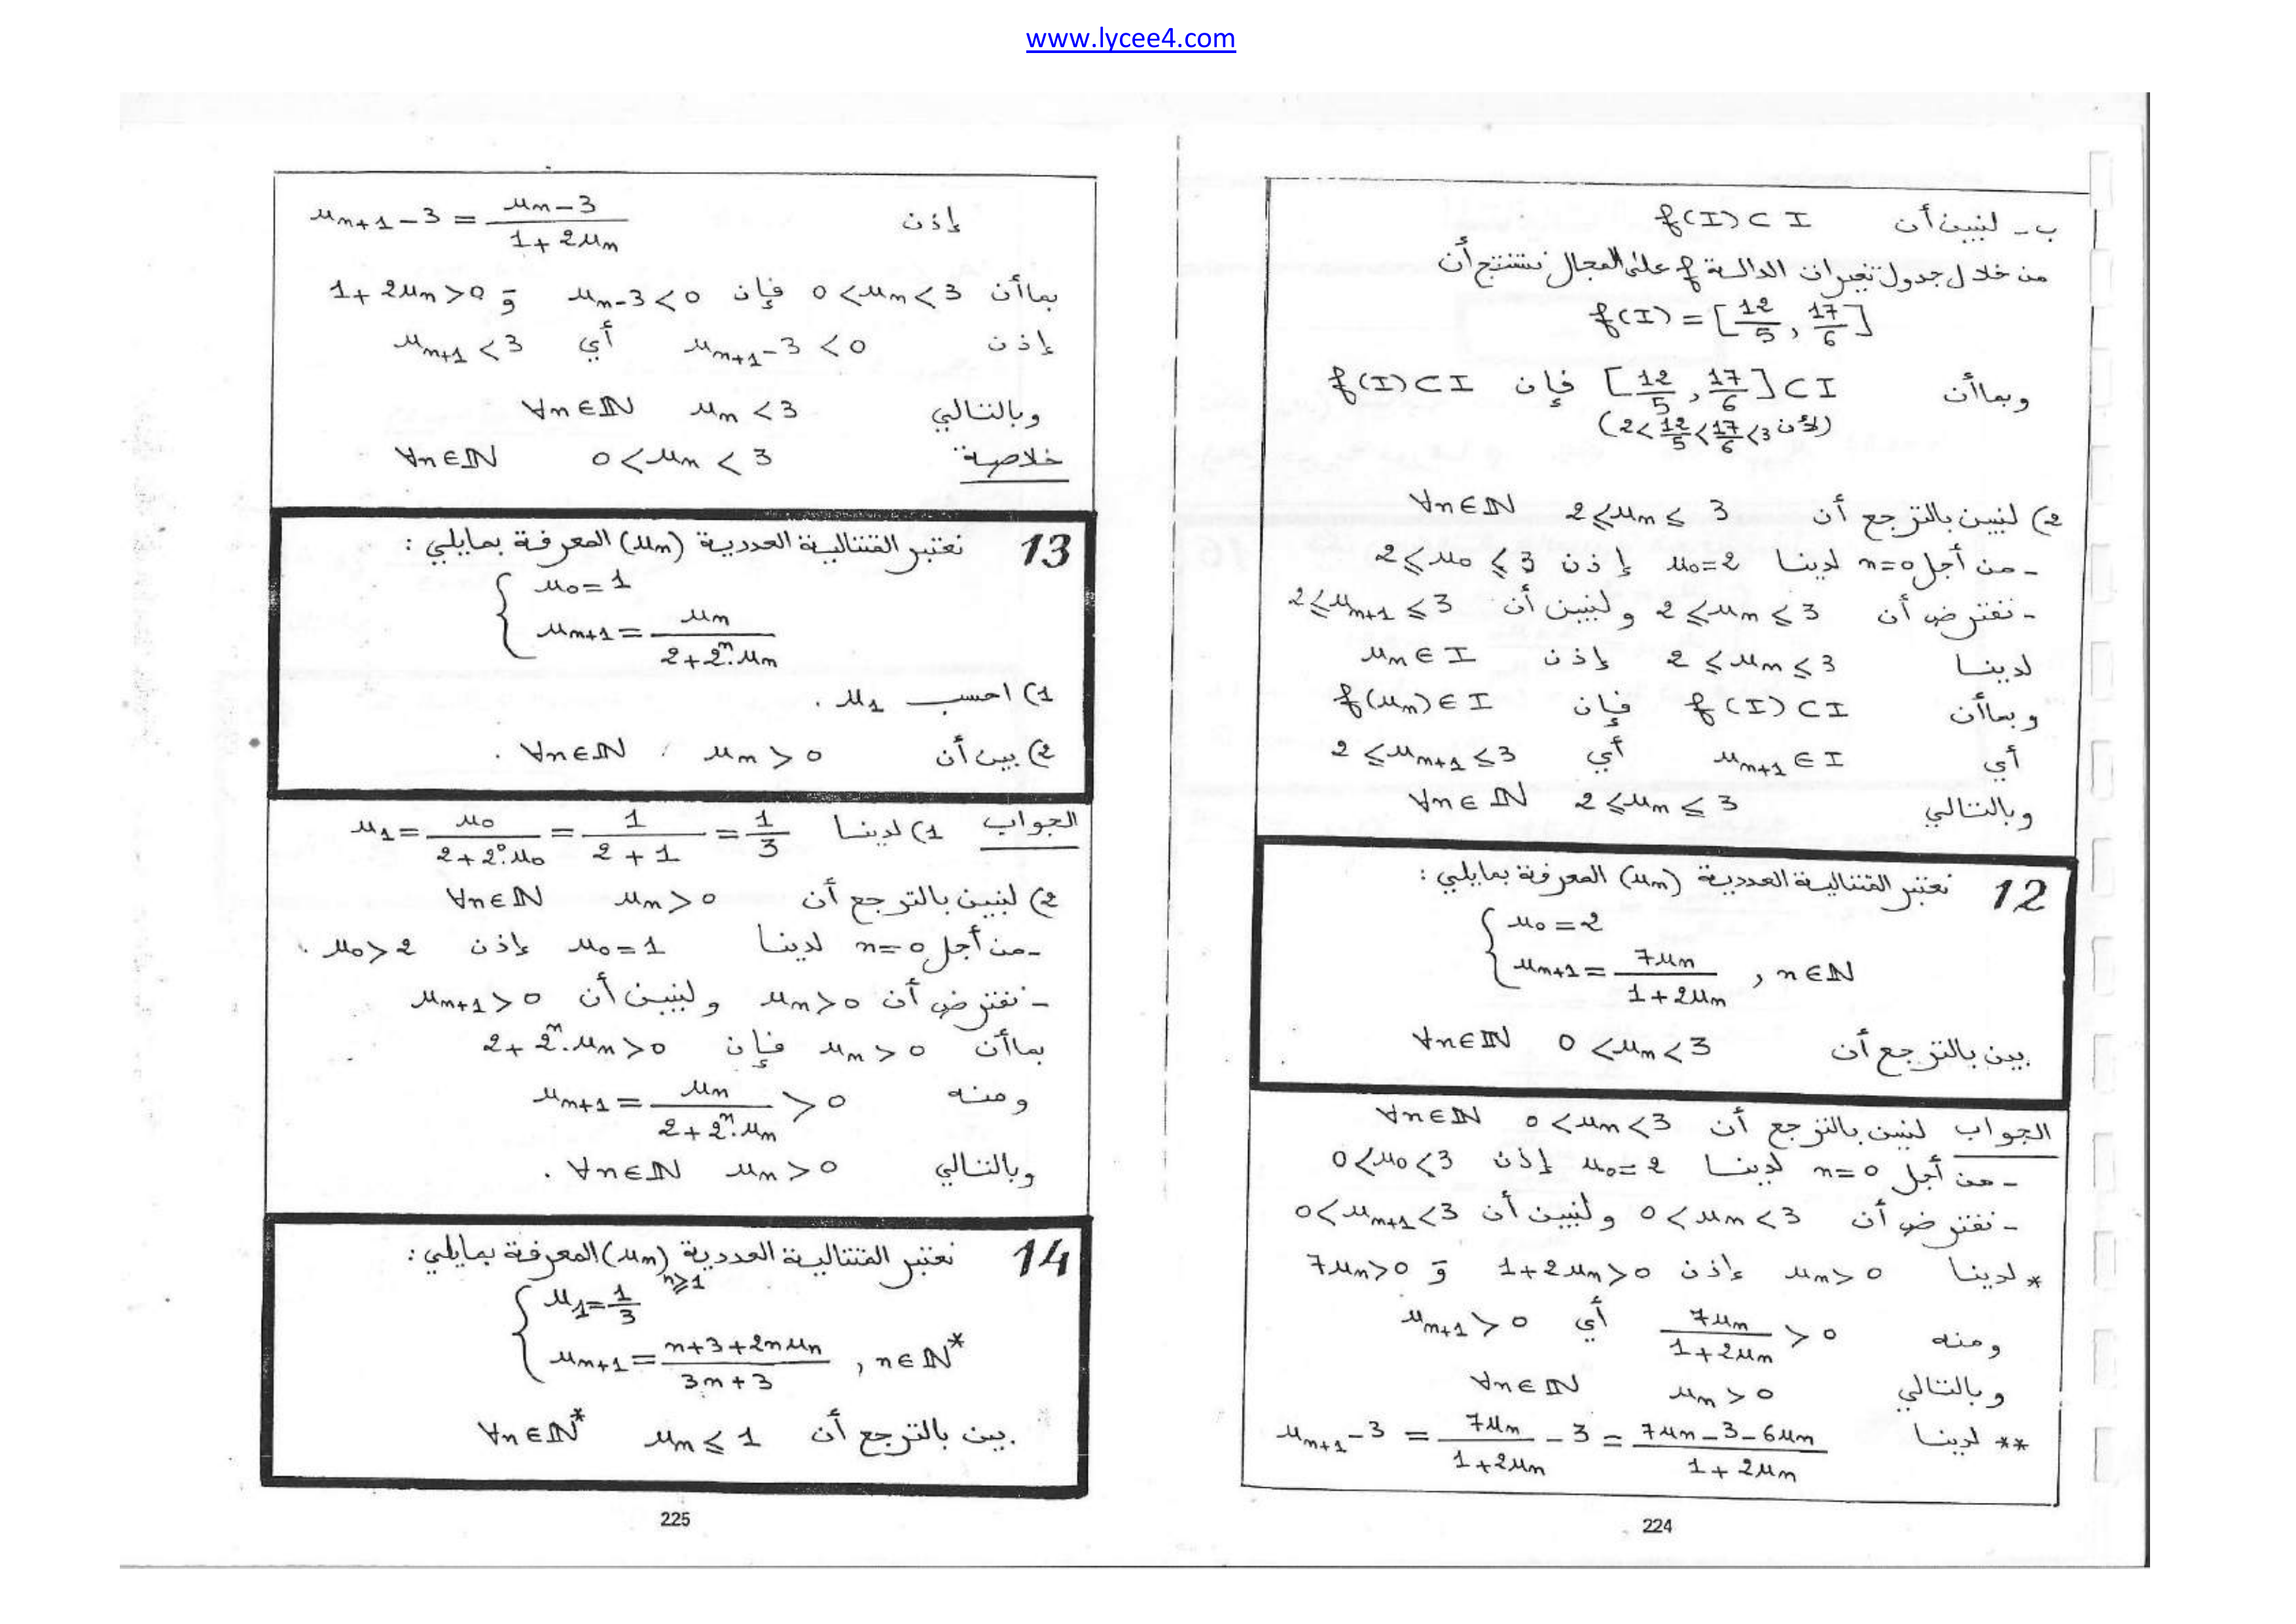 www.lycee4.com
ب - لنبين أن f(I) ⊂ I
من خلال جدول تغيرات الدالة f على المجال نستنتج أن
f(I) = [12/5 , 17/6]
وبما أن [12/5 , 17/6] ⊂ I فإن f(I) ⊂ I
(لأن 2 < 12/5 < 17/6 < 3)
2) لنبين بالترجع أن 2 ≤ uₙ ≤ 3 ∀n ∈ ℕ
- من أجل n = 0 لدينا u₀ = 2 إذن 2 ≤ u₀ ≤ 3
- نفترض أن 2 ≤ uₙ ≤ 3 ولنبين أن 2 ≤ uₙ₊₁ ≤ 3
لدينا 2 ≤ uₙ ≤ 3 إذن uₙ ∈ I
وبما أن f(I) ⊂ I فإن f(uₙ) ∈ I
أي uₙ₊₁ ∈ I أي 2 ≤ uₙ₊₁ ≤ 3
وبالتالي 2 ≤ uₙ ≤ 3 ∀n ∈ ℕ
12 نعتبر المتتالية العددية (uₙ) المعرفة بمايلي :
u₀ = 2
uₙ₊₁ = 7uₙ / (1 + 2uₙ) , n ∈ ℕ
بين بالترجع أن 0 < uₙ < 3 ∀n ∈ ℕ
الجواب لنبين بالترجع أن 0 < uₙ < 3 ∀n ∈ ℕ
- من أجل n = 0 لدينا u₀ = 2 إذن 0 < u₀ < 3
- نفترض أن 0 < uₙ < 3 ولنبين أن 0 < uₙ₊₁ < 3
* لدينا uₙ > 0 إذن 1 + 2uₙ > 0 و 7uₙ > 0
ومنه 7uₙ / (1 + 2uₙ) > 0 أي uₙ₊₁ > 0
وبالتالي uₙ > 0 ∀n ∈ ℕ
** لدينا uₙ₊₁ - 3 = 7uₙ / (1 + 2uₙ) - 3 = (7uₙ - 3 - 6uₙ) / (1 + 2uₙ)
224
إذن uₙ₊₁ - 3 = (uₙ - 3) / (1 + 2uₙ)
بما أن 0 < uₙ < 3 فإن uₙ - 3 < 0 و 1 + 2uₙ > 0
إذن uₙ₊₁ - 3 < 0 أي uₙ₊₁ < 3
وبالتالي uₙ < 3 ∀n ∈ ℕ
خلاصة 0 < uₙ < 3 ∀n ∈ ℕ
13 نعتبر المتتالية العددية (uₙ) المعرفة بمايلي :
u₀ = 1
uₙ₊₁ = uₙ / (2 + 2ⁿ.uₙ)
1) احسب u₁ .
2) بين أن uₙ > 0 ∀n ∈ ℕ .
الجواب 1) لدينا u₁ = u₀ / (2 + 2⁰.u₀) = 1 / (2 + 1) = 1/3
2) لنبين بالترجع أن uₙ > 0 ∀n ∈ ℕ
- من أجل n = 0 لدينا u₀ = 1 إذن u₀ > 2 .
- نفترض أن uₙ > 0 ولنبين أن uₙ₊₁ > 0
بما أن uₙ > 0 فإن 2 + 2ⁿ.uₙ > 0
ومنه uₙ₊₁ = uₙ / (2 + 2ⁿ.uₙ) > 0
وبالتالي uₙ > 0 ∀n ∈ ℕ .
14 نعتبر المتتالية العددية (uₙ)n≥1 المعرفة بمايلي :
u₁ = 1/3
uₙ₊₁ = (n + 3 + 2nuₙ) / (3n + 3) , n ∈ ℕ*
بين بالترجع أن uₙ ≤ 1 ∀n ∈ ℕ*
225